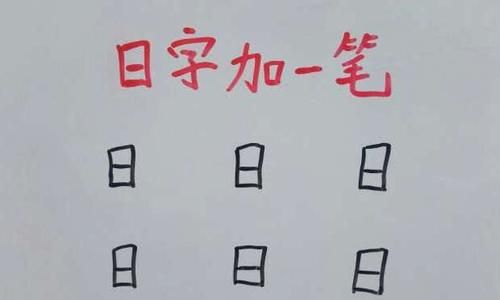 日字加一笔
日 日 日
日 日 日